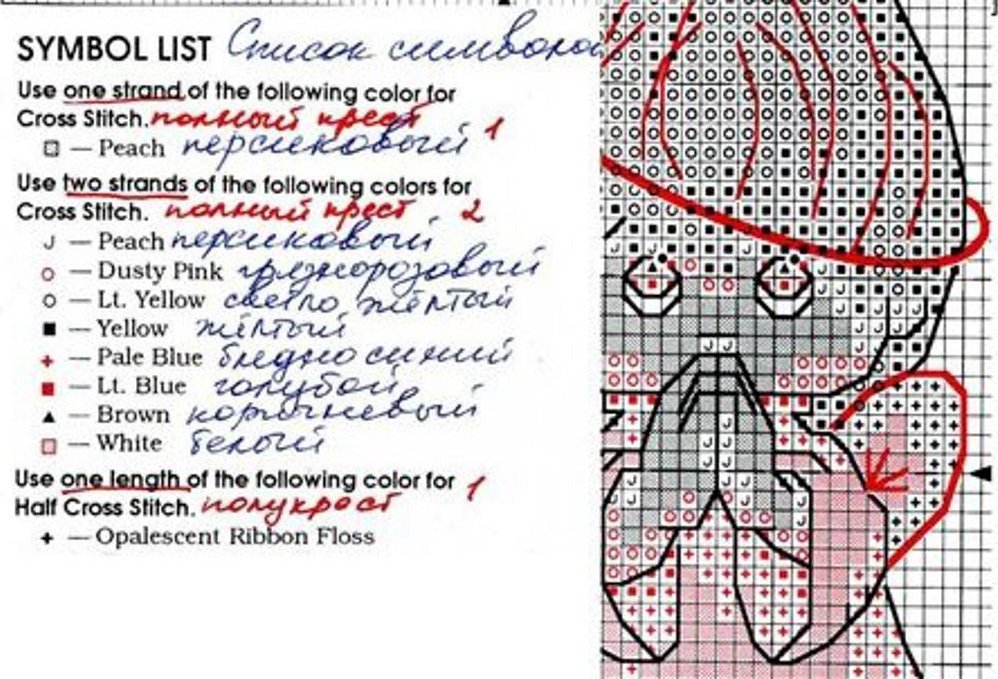 SYMBOL LIST Список символов
Use one strand of the following color for
Cross Stitch. полный крест 1
— Peach персиковый
Use two strands of the following colors for
Cross Stitch. полный крест 2
J — Peach персиковый
— Dusty Pink грязнорозовый
— Lt. Yellow светло жёлтый
— Yellow жёлтый
— Pale Blue бледно синий
— Lt. Blue голубой
— Brown коричневый
— White белый
Use one length of the following color for 1
Half Cross Stitch. полукрест
+ — Opalescent Ribbon Floss